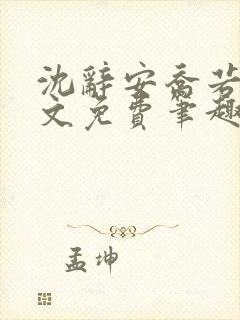 沈辭安喬若
文免費筆趣
孟坤